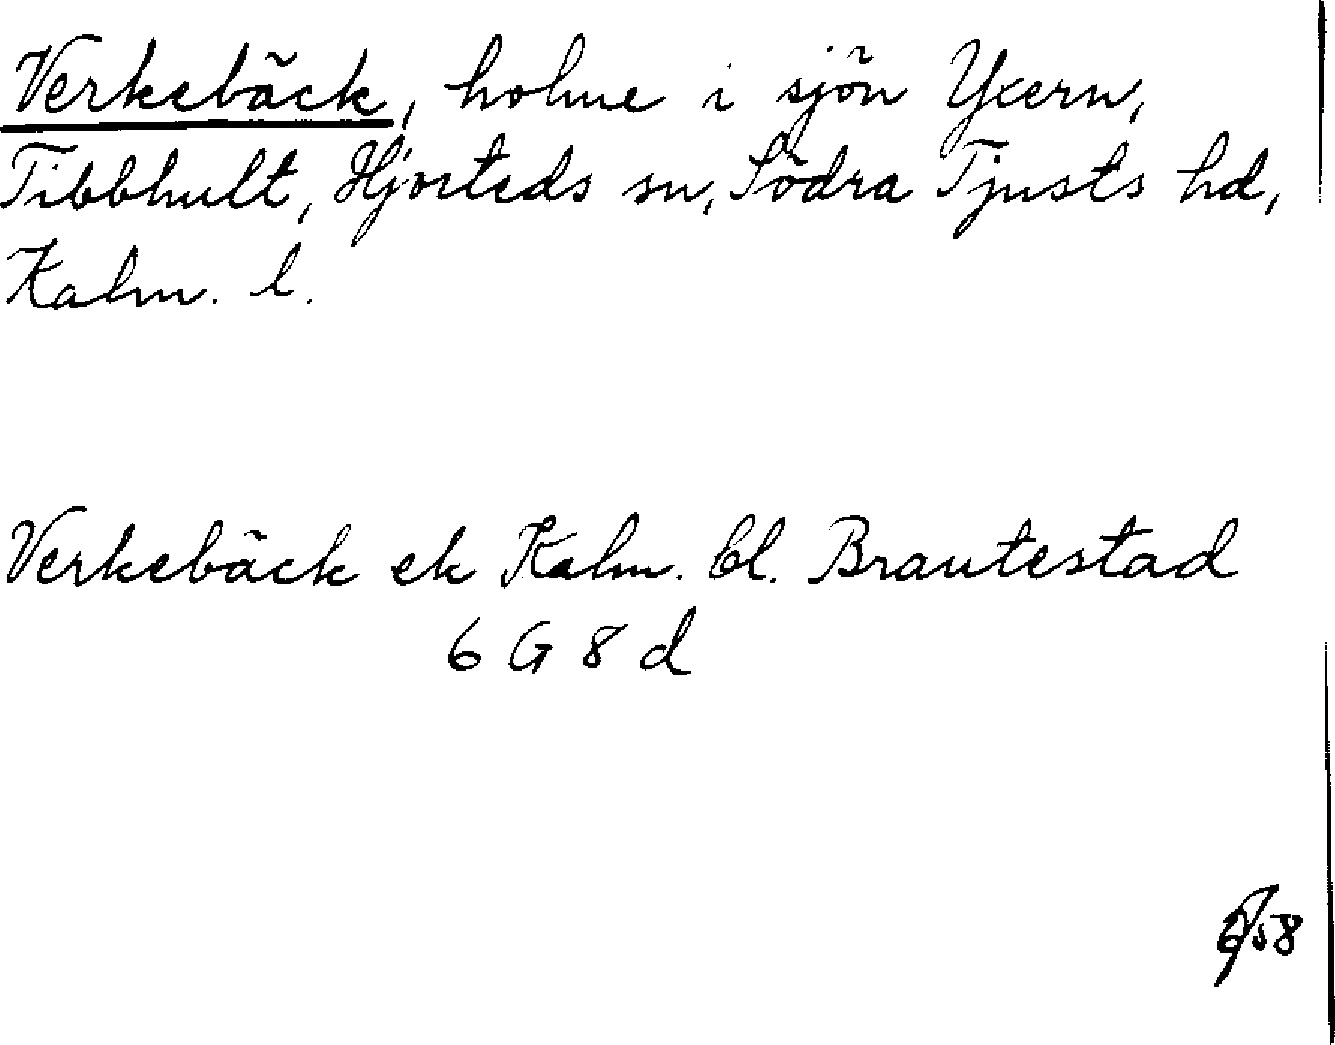 Verkebäck, holme i sjön Yxern,
Tibbhult, Hjorteds sn, Södra Tjusts hd,
Kalm. l.
Verkebäck ek Kalm. bl. Brantestad
6 G 8 d